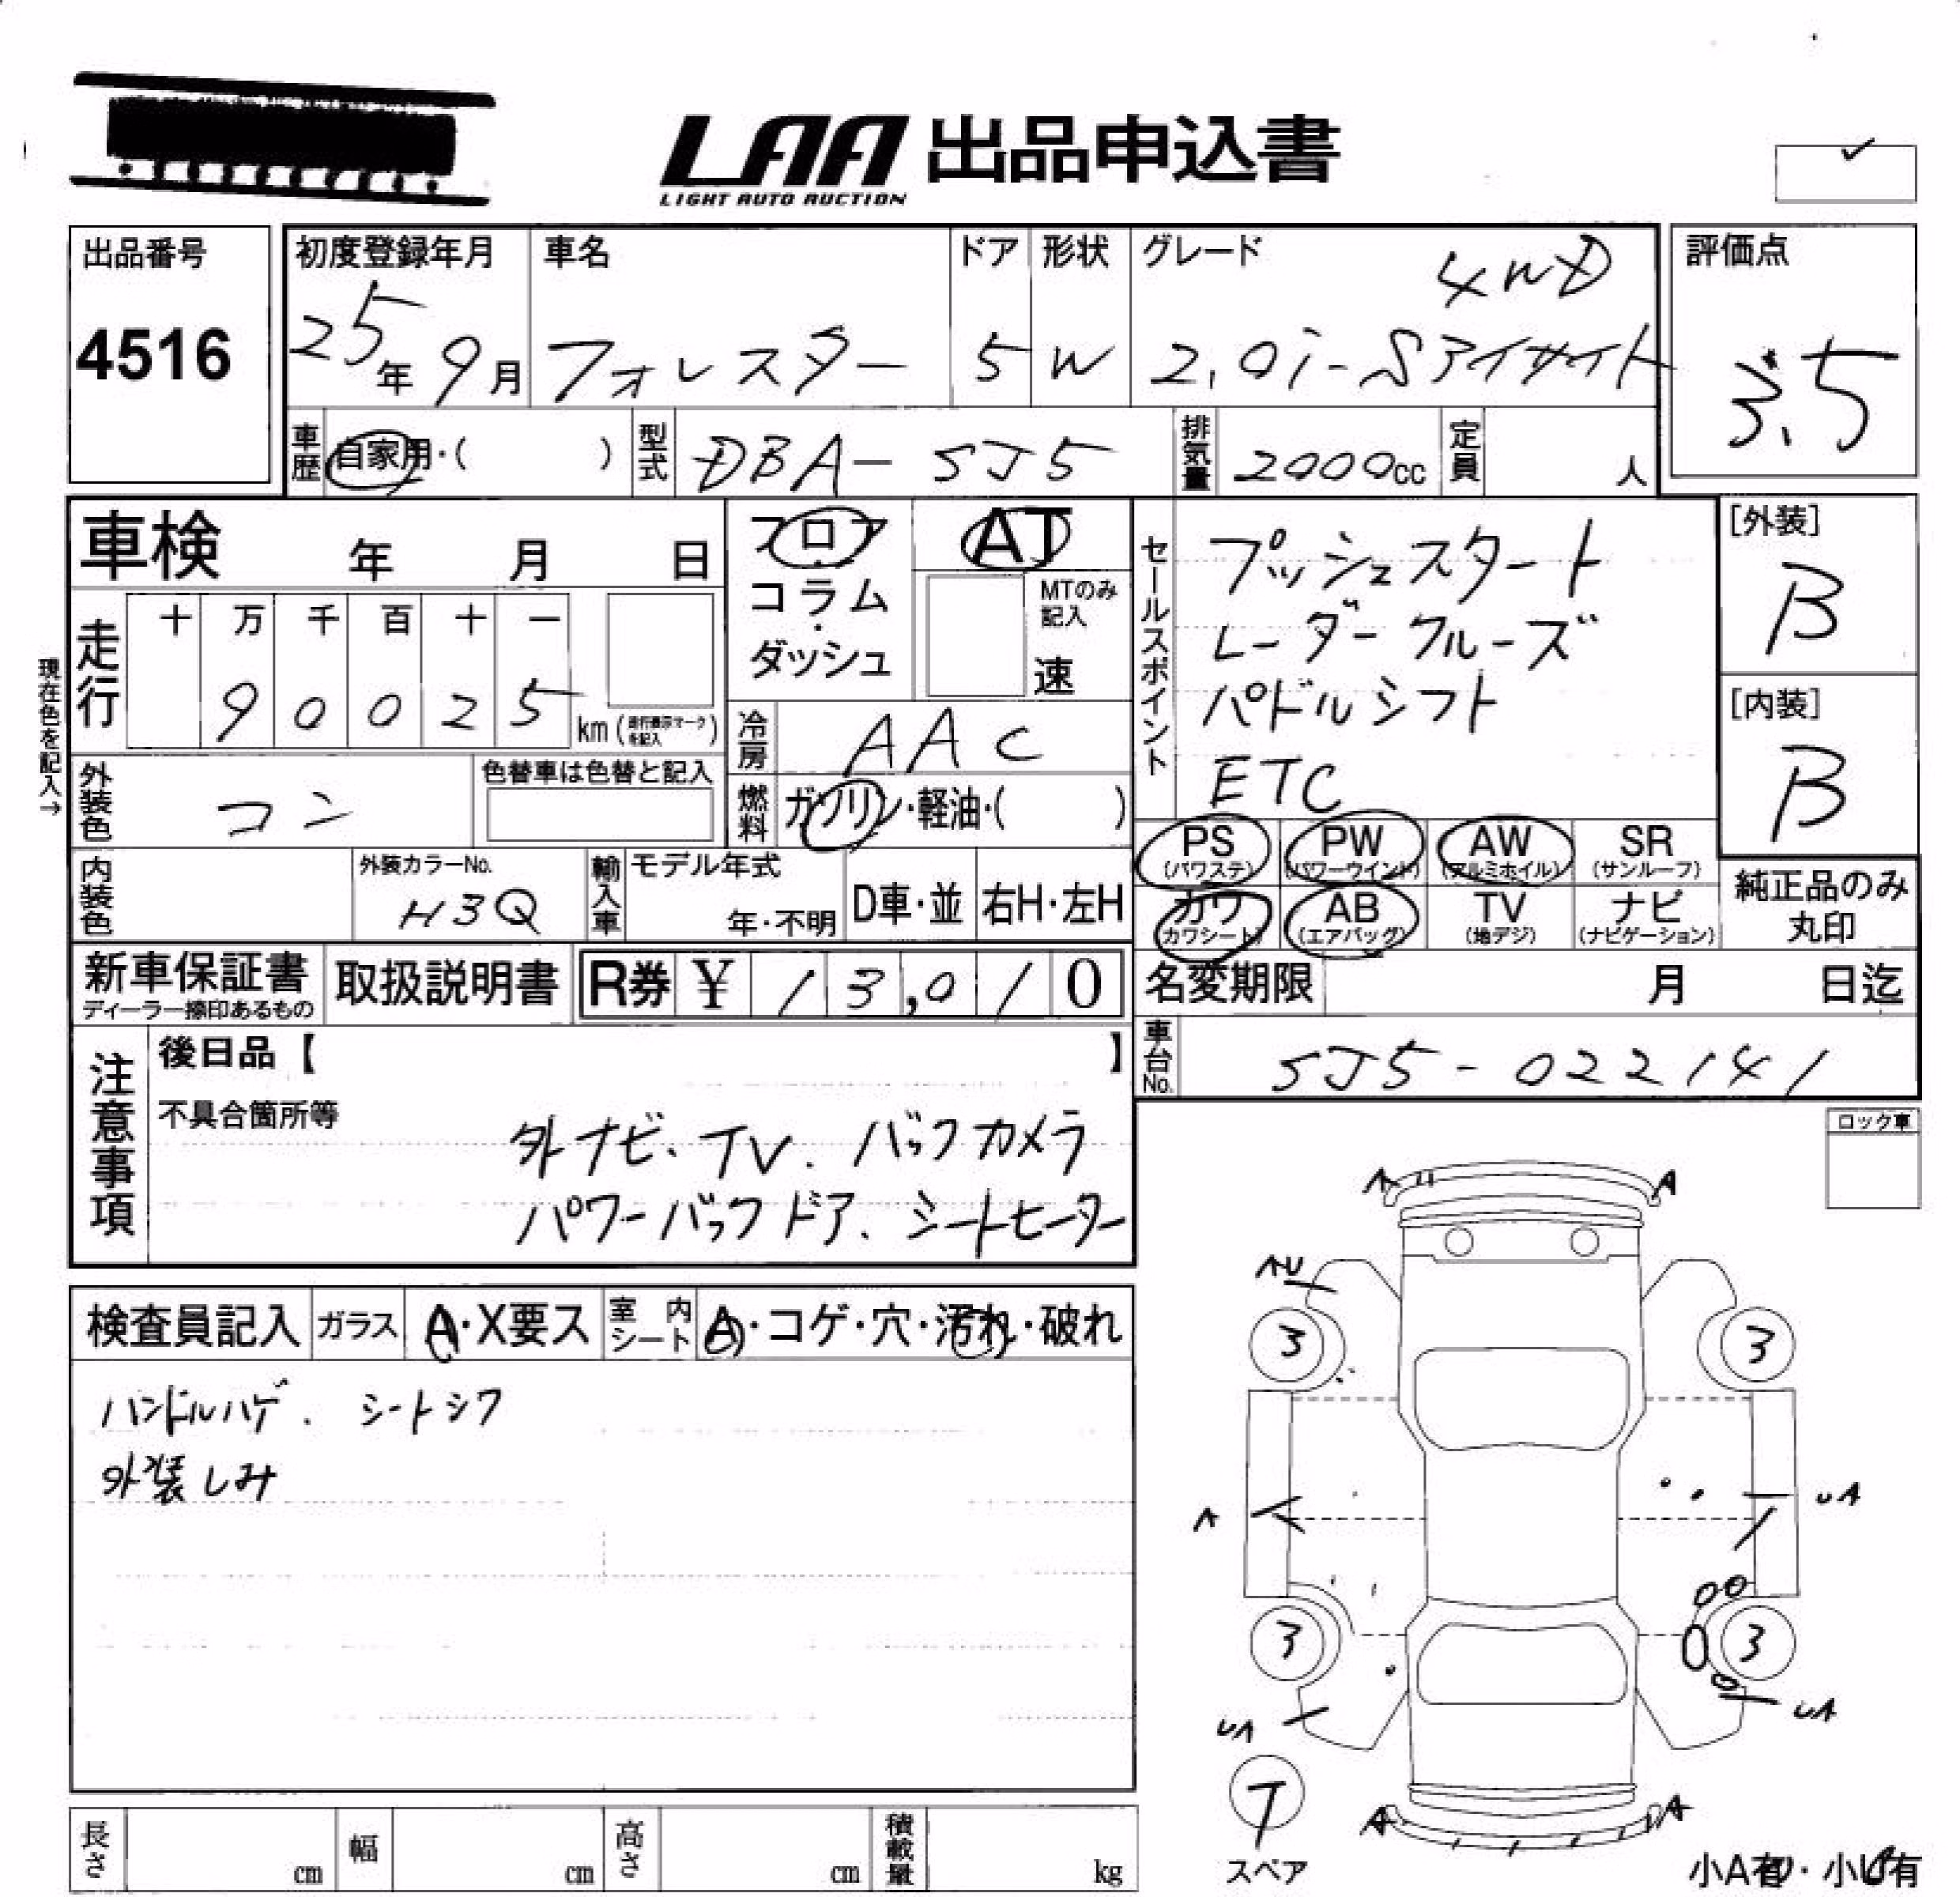 LAA 出品申込書
LIGHT AUTO AUCTION
出品番号
4516
初度登録年月
25年9月
車名
フォレスター
ドア
5
形状
W
グレード
4WD
2.0i-Sアイサイト
評価点
3.5
車歴
自家用・( )
型式
DBA-SJ5
排気量
2000cc
定員
人
車検 年 月 日
フロア・コラム・ダッシュ
AT
MTのみ記入
速
現在色を記入→
走行
十 万 千 百 十 一
9 0 0 2 5
km(走行表示マークを記入)
冷房
AAC
外装色
コン
色替車は色替と記入
燃料
ガソリン・軽油・( )
内装色
外装カラーNo.
H3Q
輸入車
モデル年式
年・不明
D車・並
右H・左H
セールスポイント
プッシュスタート
レーダークルーズ
パドルシフト
ETC
[外装]
B
[内装]
B
PS (パワステ)
PW (パワーウインド)
AW (アルミホイル)
SR (サンルーフ)
カワ (カワシート)
AB (エアバッグ)
TV (地デジ)
ナビ (ナビゲーション)
純正品のみ
丸印
新車保証書
ディーラー捺印あるもの
取扱説明書
R券 ¥ 13,010
名変期限 月 日迄
車台No.
SJ5-022141
注意事項
後日品【 】
不具合箇所等
外ナビ、TV、バックカメラ
パワーバックドア、シートヒーター
ロック車
検査員記入
ガラス
A・X要ス
室内シート
A・コゲ・穴・汚れ・破れ
ハンドルハゲ、シートシワ
外装しみ
A
A
AU
3
3
A
UA
3
3
UA
UA
T
スペア
A
A
小A有・小U有
長さ cm
幅 cm
高さ cm
積載量 kg